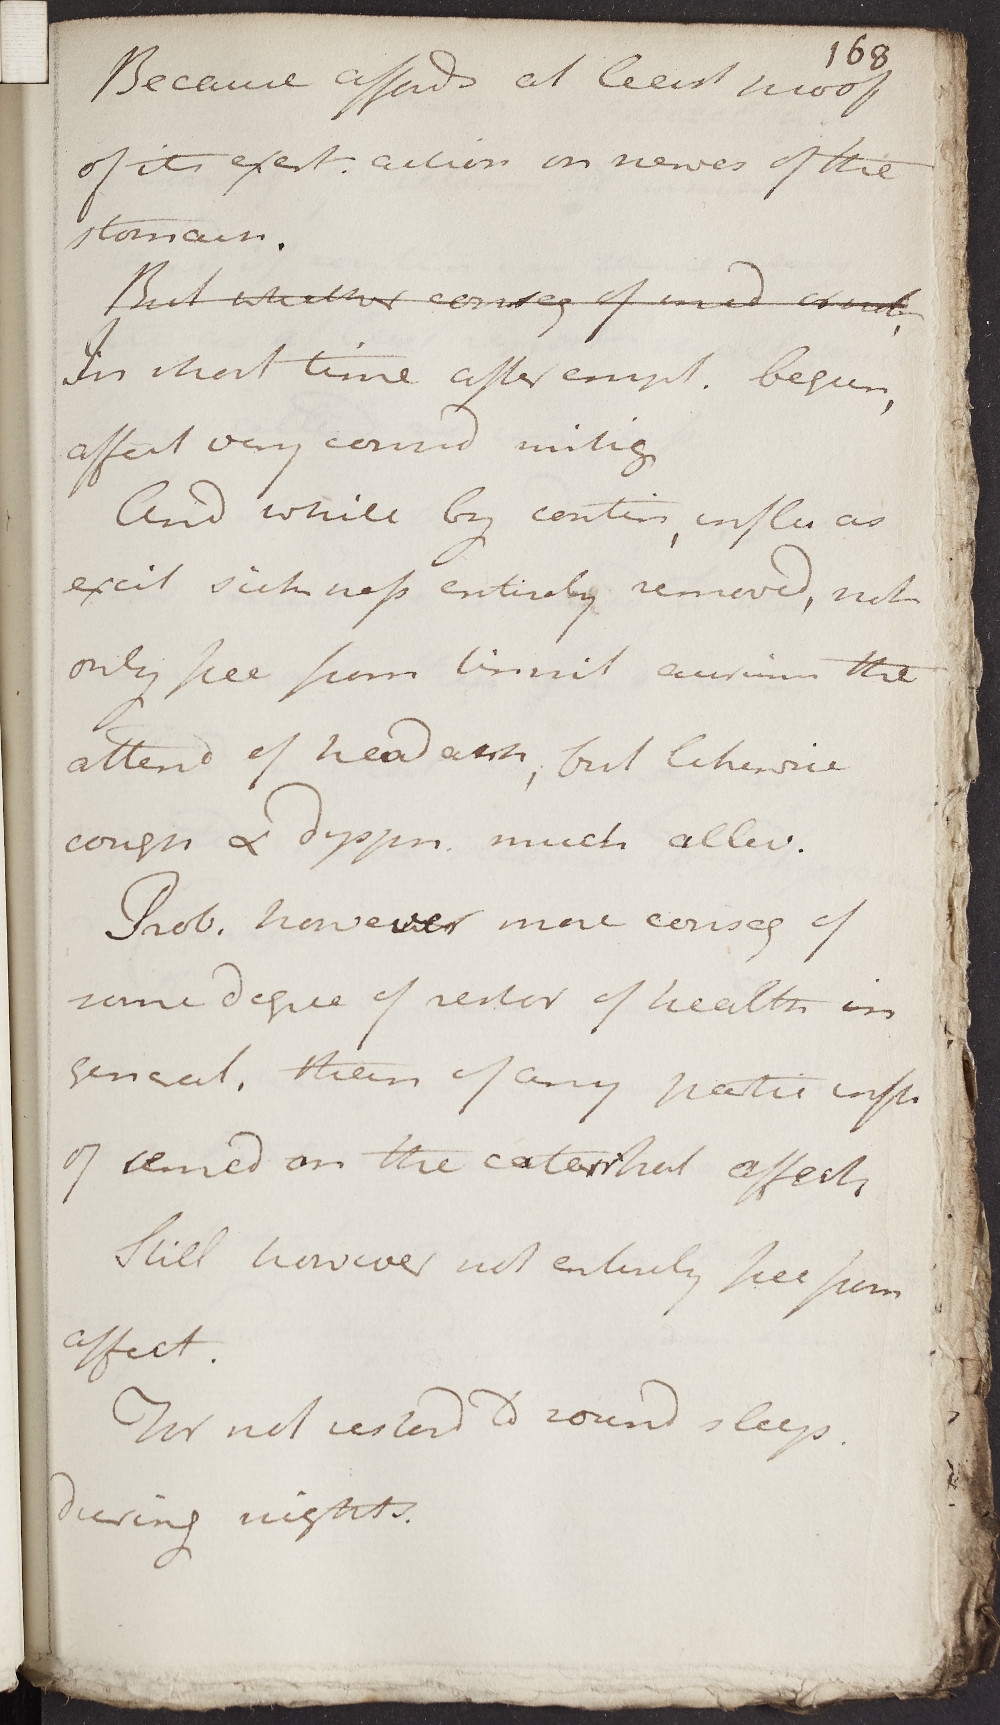 168
Because affords at least proof
of its exert. action on nerves of the
stomach.
But whether conseq of med or not,
In short time after empl. begun,
affect very consid mitig
And while by contin, influ as
excit sickness entirely removed, not
only free from tinnit aurium the
attend of headach, but likewise
cough & dyspn. much allev.
Prob. however more conseq of
some degree of restor of health in
general, than of any partic infl
of remed on the catarrhal affect,
Still however not entirely free from
affect.
Nor not restord to sound sleep.
during nights.